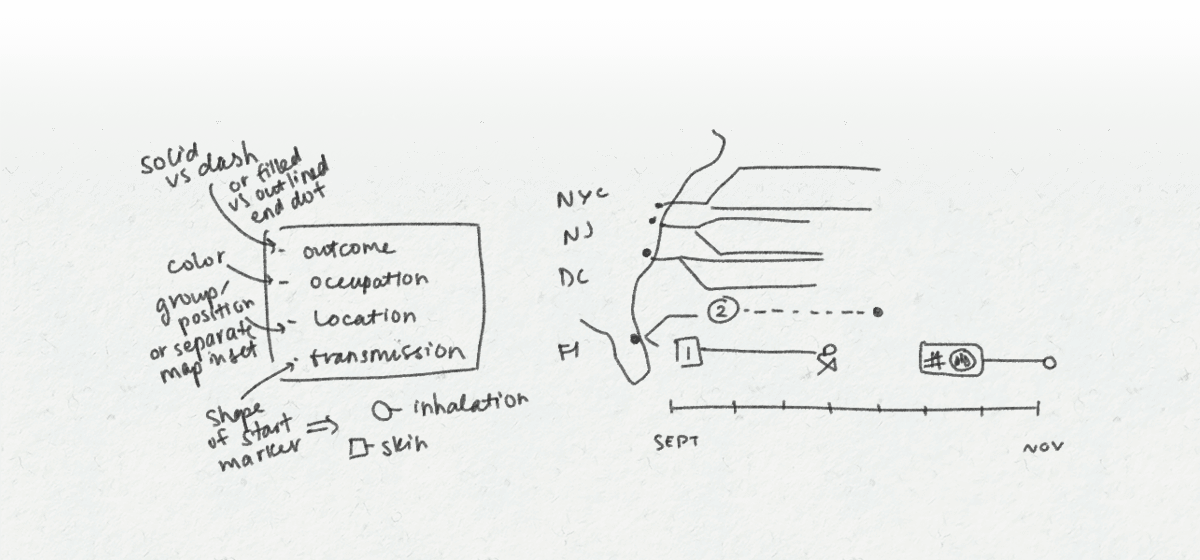 solid
vs dash
or filled
vs outlined
end dot
color
group/
position
or separate
map inset
shape
of start
marker
- outcome
- occupation
- location
- transmission
inhalation
skin
NYC
NJ
DC
Fl
2
1
#
SEPT
NOV